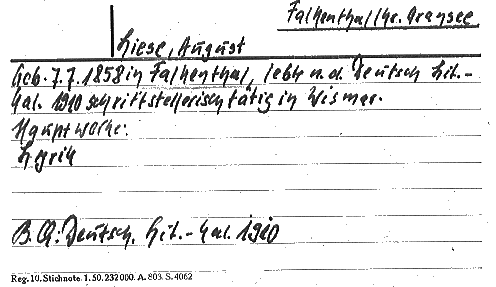 Falkenthal Kr. Gransee
Liese, August
Geb. 7.7.1858 in Falkenthal, lebte n. d. Deutsch. Lit.-
Kal. 1910 schriftstellerisch tätig in Wismar.
Hauptwerke:
Lyrik
B. Q: Deutsch. Lit.-Kal. 1910
Reg. 10. Stichnote. 1. 50. 232000. A. 803. S. 4062